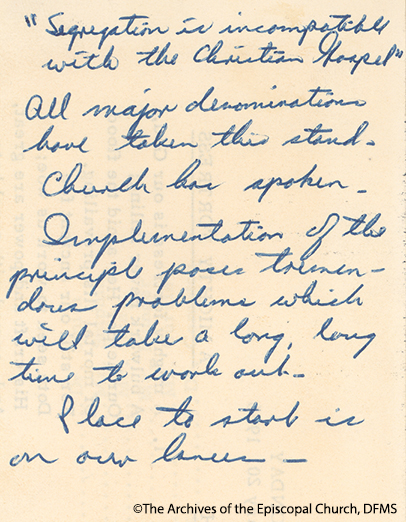 "Segregation is incompatible
with the Christian Gospel"
All major denominations
have taken this stand.
Church has spoken.
Implementation of the
principle poses tremen-
dous problems which
will take a long, long
time to work out.
Place to start is
on our knees —
©The Archives of the Episcopal Church, DFMS